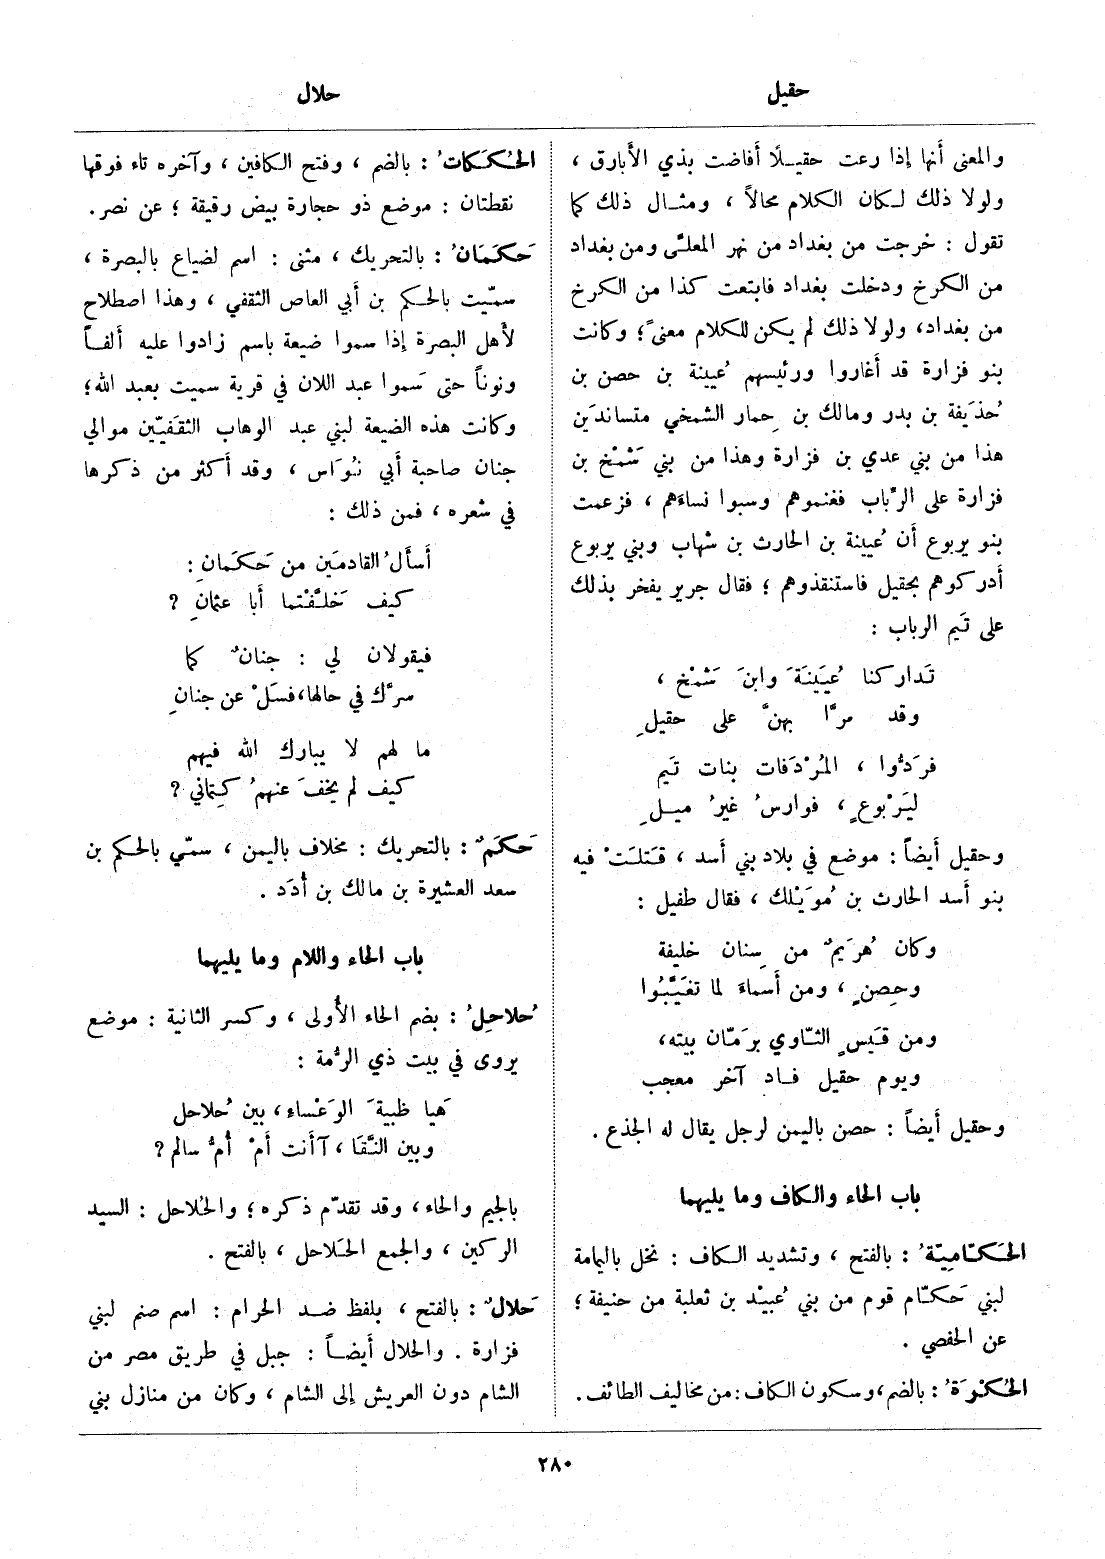 حقيل
حلال
والمعنى أنها إذا رعت حقيـلًا أفاضت بذي الأبارق ،
ولولا ذلك لـكان الكلام محالاً ، ومثـال ذلك كما
تقول : خرجت من بغداد من نهر المعلّى ومن بغداد
من الكرخ ودخلت بغداد فابتعت كذا من الكرخ
من بغداد، ولولا ذلك لم يكن للكلام معنىً؛ وكانت
بنو فزارة قد أغاروا ورئيسهم عُيينة بن حصن بن
حُذَيفة بن بدر ومالك بن حِمار الشمخي متساندَين
هذا من بني عدي بن فزارة وهذا من بني شَمْخ بن
فزارة على الرِّباب فغنموهم وسبوا نساءَهم ، فزعمت
بنو يربوع أن عُيينة بن الحارث بن شهاب وبني يربوع
أدركوهم بحقيل فاستنقذوهم ؛ فقال جرير يفخر بذلك
على تَيم الرباب :
تَداركنا عُيَينَةَ وابنَ شَمْخ ،
وقد مرَّا بهنَّ على حقيلِ
فرَدُّوا ، المُرْدَفات بنات تَيم
ليَرْبوعٍ ، فوارسُ غيرُ ميـلِ
وحقيل أيضاً : موضع في بلاد بني أسد ، قَتلَتْ فيه
بنو أسد الحارث بن مُوَيْلك ، فقال طفيل :
وكان هُرَيمٌ من سِنان خليفة
وحِصنٍ ، ومن أسماءَ لما تغَيَّبُوا
ومن قَيسٍ الثاوي برَمّان بيته،
ويوم حقيل فـاد آخر معجب
وحقيل أيضاً : حصن باليمن لرجل يقال له الجذع .
باب الحاء والكاف وما يليهما
الحَكّاميّةُ : بالفتح ، وتشديد الكاف : نخل باليمامة
لبني حَكّام قوم من بني عُبيْد بن ثعلبة من حنيفة ؛
عن الحفصي .
الحُكْرَةُ : بالضم، وسكون الكاف : من مخاليف الطائف .
الحُكَكاتُ : بالضم ، وفتح الكافين ، وآخره تاء فوقها
نقطتان : موضع ذو حجارة بيض رقيقة ؛ عن نصر .
حَكَمَانُ : بالتحريك ، مثنى : اسم لضياع بالبصرة ،
سمّيت بالحكم بن أبي العاص الثقفي ، وهذا اصطلاح
لأهل البصرة إذا سموا ضيعة باسم زادوا عليه ألفـاً
ونوناً حتى سَموا عبد اللان في قرية سميت بعبد الله؛
وكانت هذه الضيعة لبني عبد الوهاب الثقَفيّين موالي
جنان صاحبة أبي نُوَاس ، وقد أكثر من ذكرها
في شعره ، فمن ذلك :
أسألُ القادمَين من حَكَمانِ :
كيف خَلَّفْتما أبا عثمانِ ؟
فيقولان لي : جنانٌ كما
سرَّك في حالها، فسَلْ عن جنانِ
ما لهم لا يبارك الله فيهم
كيف لم يخفَ عنهمُ كِتماني ؟
حَكَمٌ : بالتحريك : مخلاف باليمن ، سمّي بالحكم بن
سعد العشيرة بن مالك بن أُدَد .
باب الحاء واللام وما يليهما
حُلاحِلُ : بضم الحاء الأُولى ، وكسر الثانية : موضع
يروى في بيت ذي الرُّمة :
هَيا ظبيةَ الوَعْساء، بين حُلاحل
وبين النَّقَا ، آأنت أمْ أُمُّ سالم ؟
بالجيم والحاء، وقد تقدّم ذكره؛ والحُلاحل : السيد
الركين ، والجمع الحَلاحل ، بالفتح .
حَلالٌ : بالفتح ، بلفظ ضد الحرام : اسم صنم لبني
فزارة . والحلال أيضـاً : جبل في طريق مصر من
الشام دون العريش إلى الشام ، وكان من منازل بني
٢٨٠